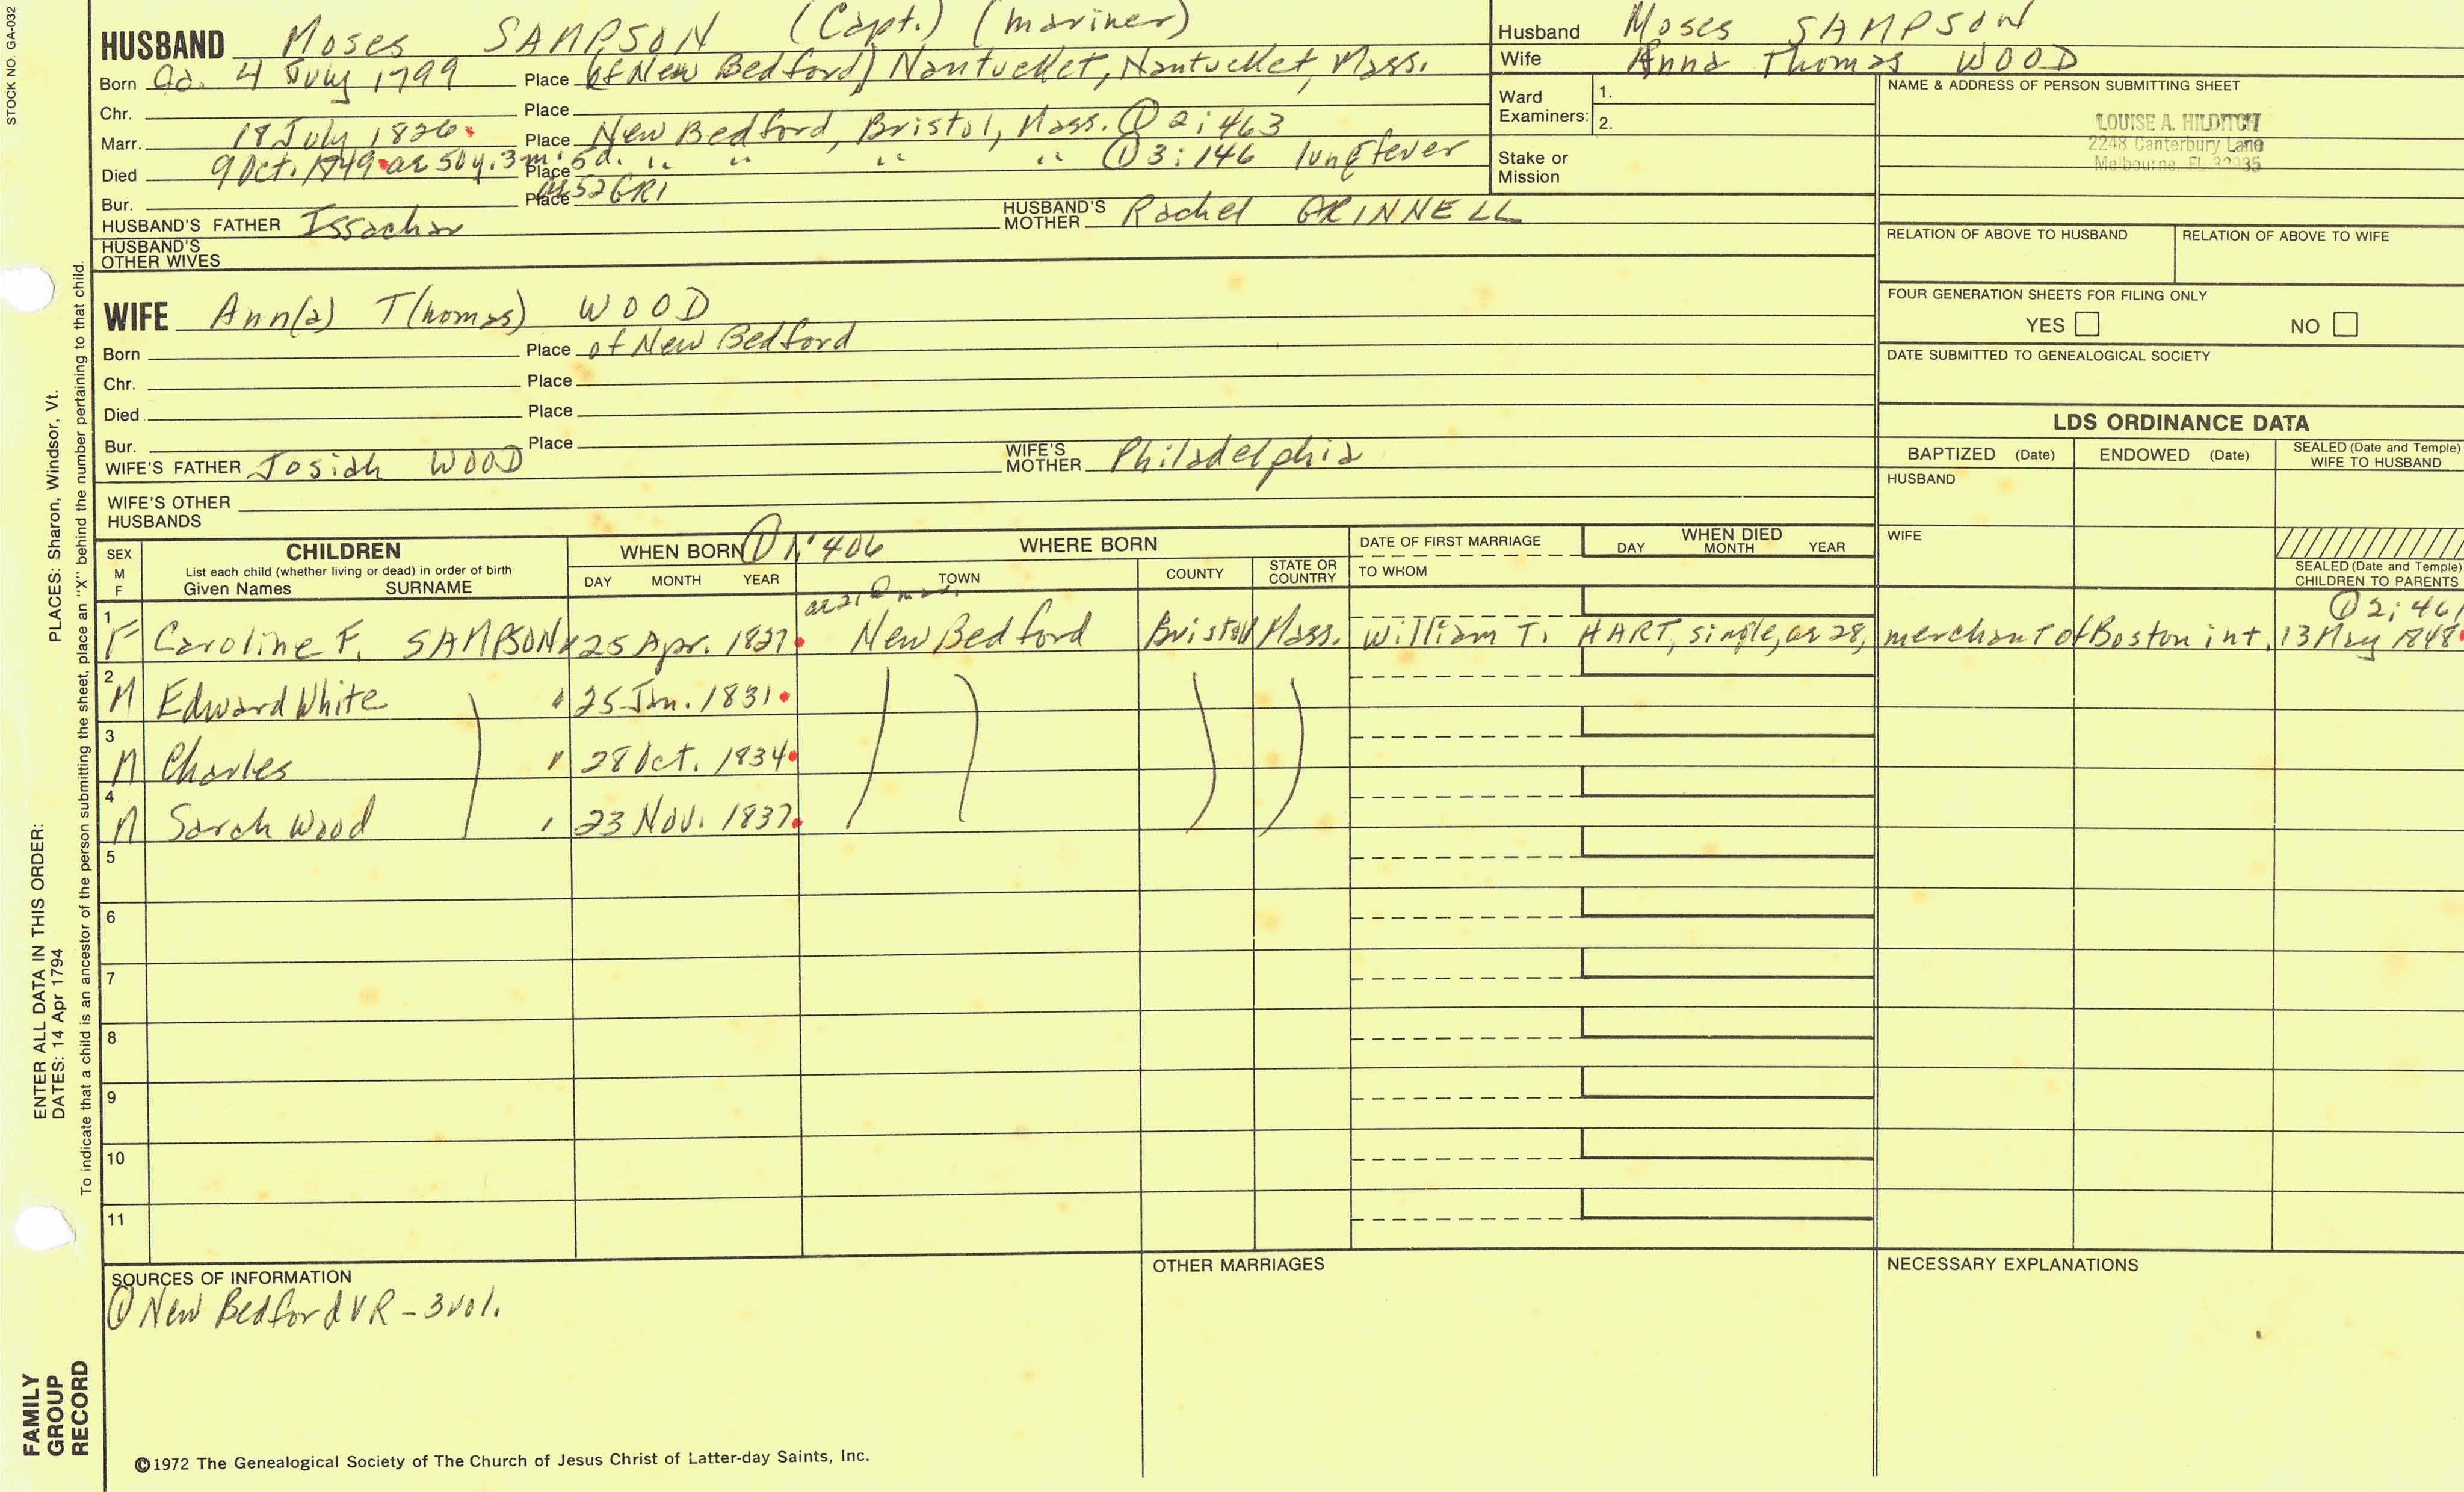 STOCK NO. GA-032
HUSBAND Moses SAMPSON (Capt.) (mariner)
Born Ca. 4 July 1799 Place (of New Bedford) Nantucket, Nantucket, Mass.
Chr. Place
Marr. 18 July 1826 Place New Bedford, Bristol, Mass. ① 2:463
Died 9 Oct. 1849 ae 50y. 3m. 5d. Place " " " " ① 3:146 lung fever
Bur. Place ae 52 GR1
HUSBAND'S FATHER Issachar HUSBAND'S MOTHER Rachel GRINNELL
HUSBAND'S OTHER WIVES
Husband Moses SAMPSON
Wife Anna Thomas WOOD
Ward Examiners: 1.
2.
Stake or Mission
NAME & ADDRESS OF PERSON SUBMITTING SHEET
LOUISE A. HILDITCH
2248 Canterbury Lane
Melbourne, FL 32935
RELATION OF ABOVE TO HUSBAND RELATION OF ABOVE TO WIFE
FOUR GENERATION SHEETS FOR FILING ONLY
YES NO
DATE SUBMITTED TO GENEALOGICAL SOCIETY
WIFE Ann(a) T(homas) WOOD
Born Place of New Bedford
Chr. Place
Died Place
Bur. Place
WIFE'S FATHER Josiah WOOD WIFE'S MOTHER Philadelphia
WIFE'S OTHER HUSBANDS
LDS ORDINANCE DATA
BAPTIZED (Date) ENDOWED (Date) SEALED (Date and Temple) WIFE TO HUSBAND
HUSBAND
WIFE
SEALED (Date and Temple) CHILDREN TO PARENTS
SEX M F
CHILDREN
List each child (whether living or dead) in order of birth
Given Names SURNAME
WHEN BORN ① 1:406
DAY MONTH YEAR
WHERE BORN
TOWN COUNTY STATE OR COUNTRY
DATE OF FIRST MARRIAGE
TO WHOM
WHEN DIED
DAY MONTH YEAR
ae 21 @ mar. ① 2:461
1 F Caroline F. SAMPSON 25 Apr. 1827 New Bedford Bristol Mass. William T. HART, single, ae 28, merchant of Boston int. 13 May 1848
2 M Edward White " 25 Jan. 1831
3 M Charles " 28 Oct. 1834
4 M Sarah Wood " 23 Nov. 1837
5
6
7
8
9
10
11
SOURCES OF INFORMATION
① New Bedford VR - 3 vol.
OTHER MARRIAGES
NECESSARY EXPLANATIONS
©1972 The Genealogical Society of The Church of Jesus Christ of Latter-day Saints, Inc.
FAMILY GROUP RECORD
ENTER ALL DATA IN THIS ORDER:
DATES: 14 Apr 1794
PLACES: Sharon, Windsor, Vt.
To indicate that a child is an ancestor of the person submitting the sheet, place an "X" behind the number pertaining to that child.